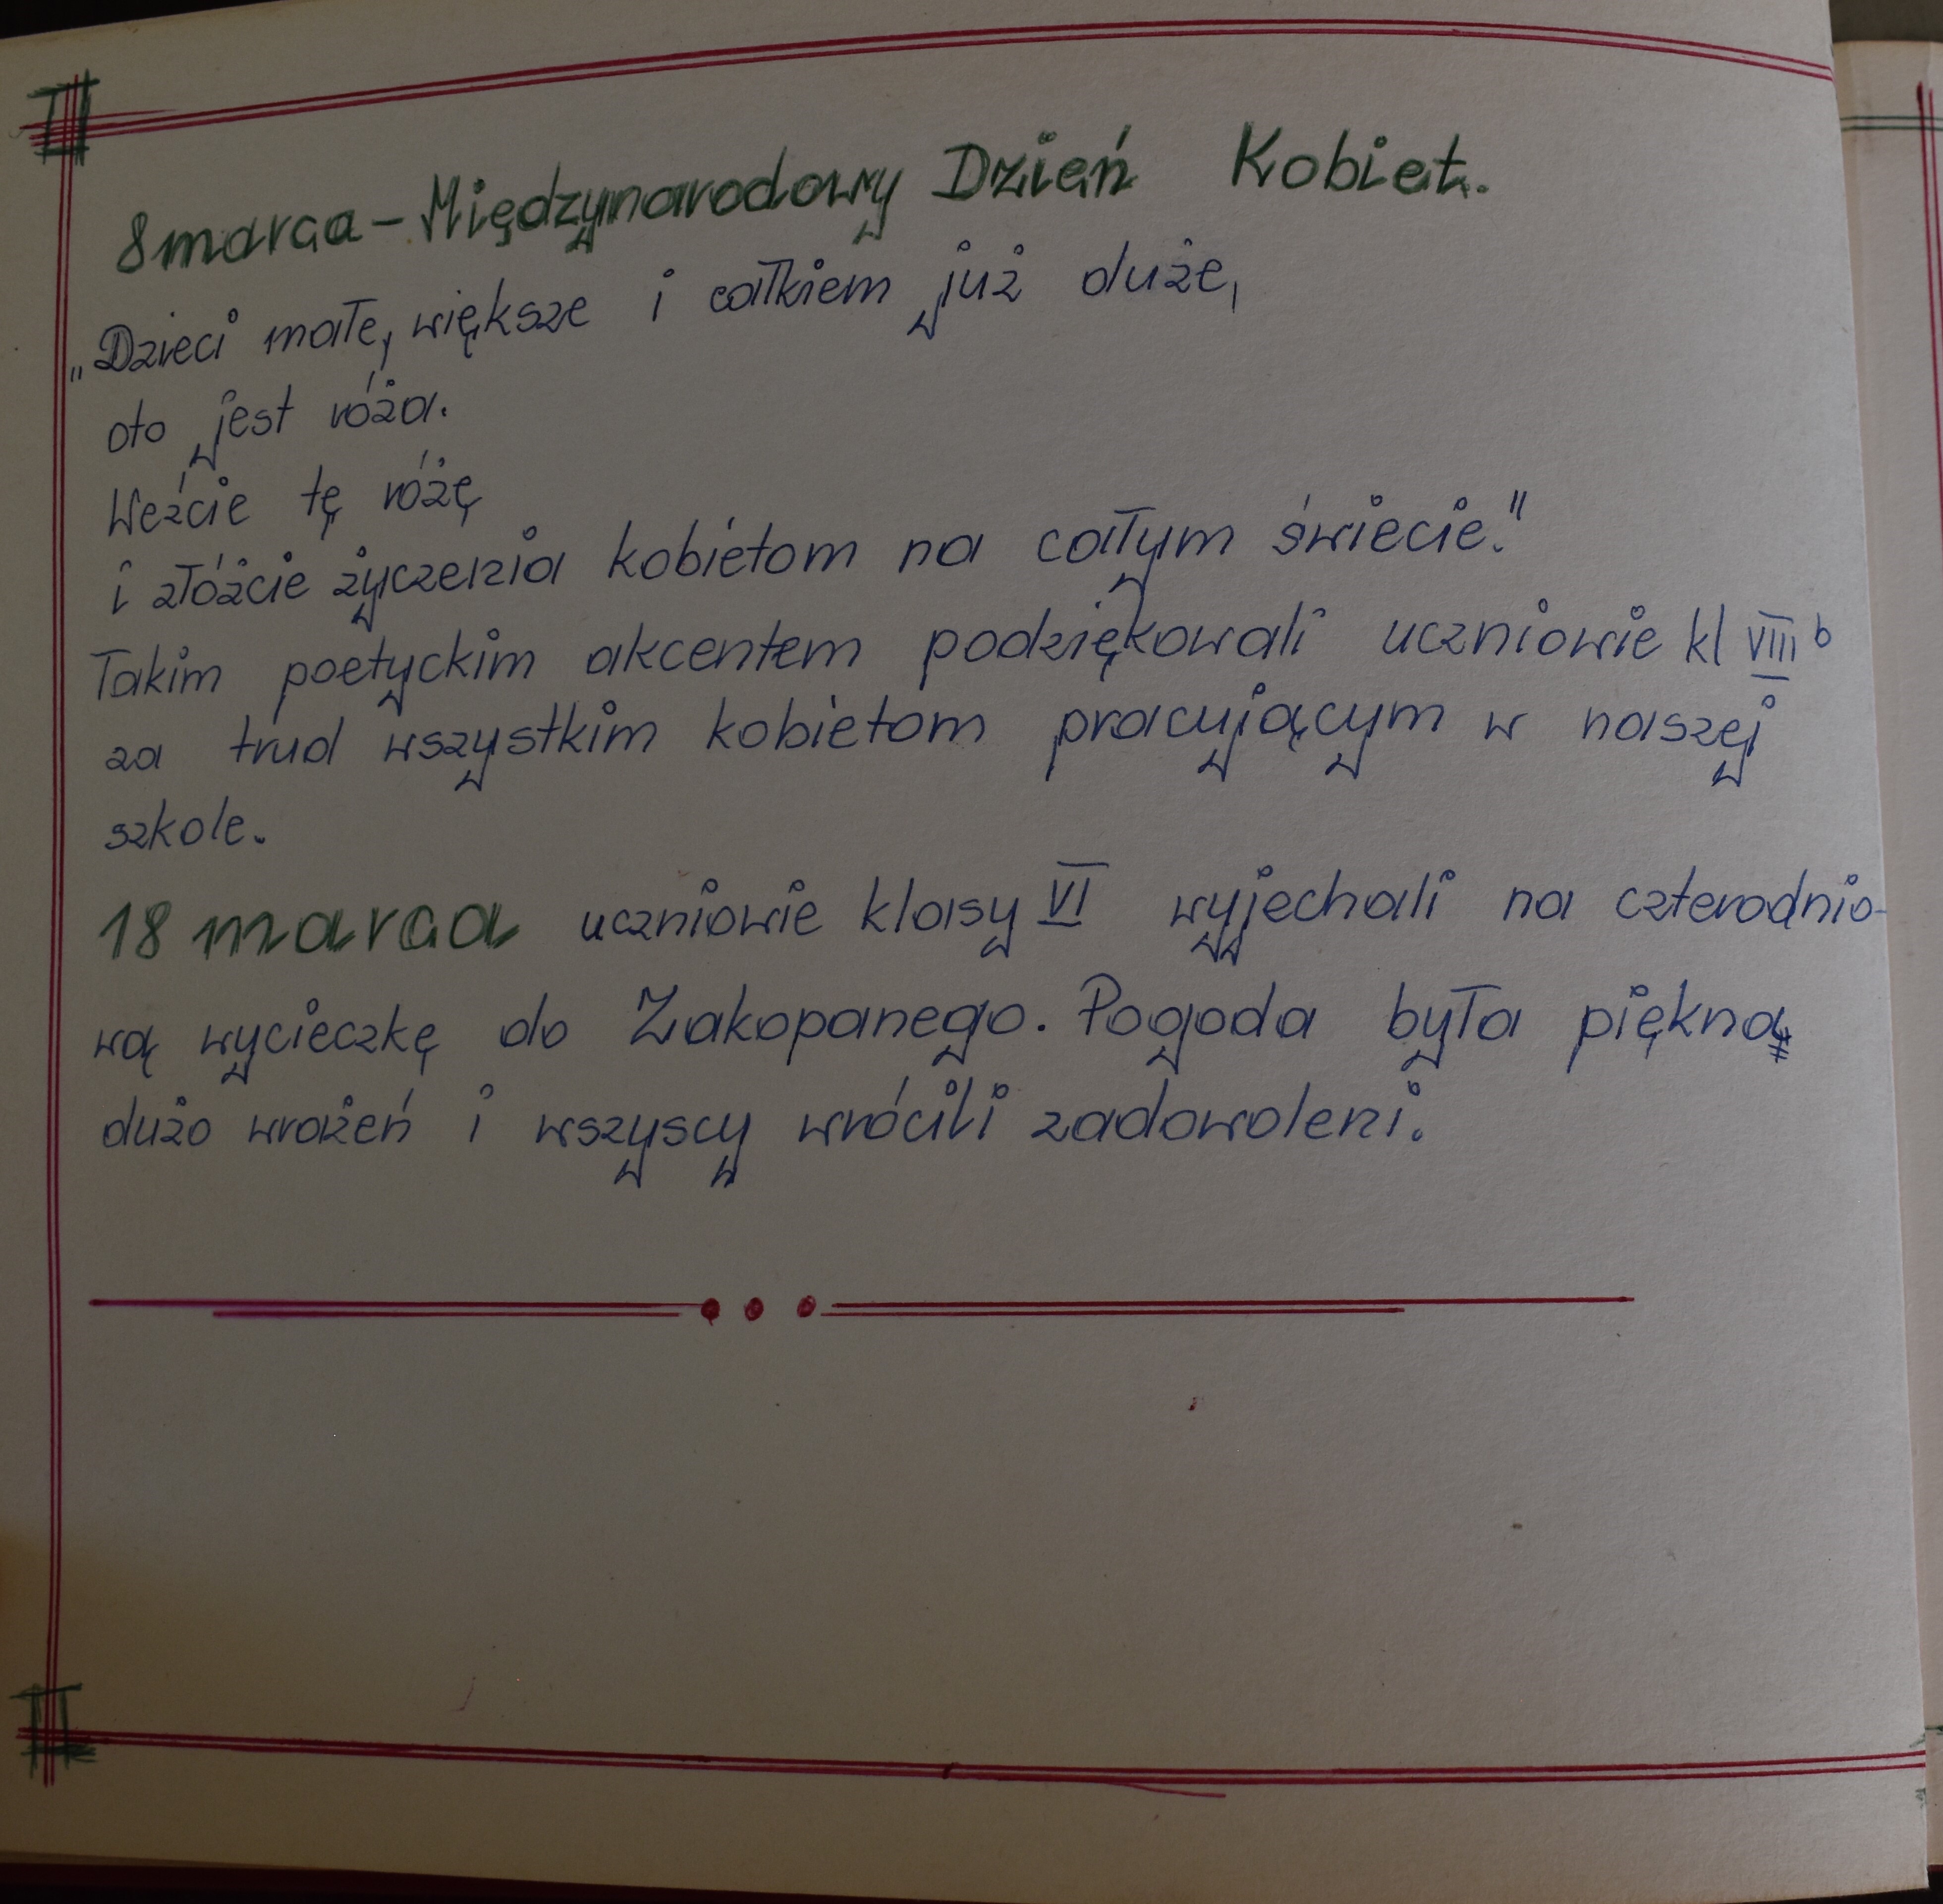 8 marca - Międzynarodowy Dzień Kobiet.
„Dzieci małe, większe i całkiem już duże,
oto jest róża.
Weźcie tę różę
i złóżcie życzenia kobietom na całym świecie."
Takim poetyckim akcentem podziękowali uczniowie kl VIII b
za trud wszystkim kobietom pracującym w naszej
szkole.
18 marca uczniowie klasy VI wyjechali na czterodnio-
wą wycieczkę do Zakopanego. Pogoda była piękna,
dużo wrażeń i wszyscy wrócili zadowoleni.